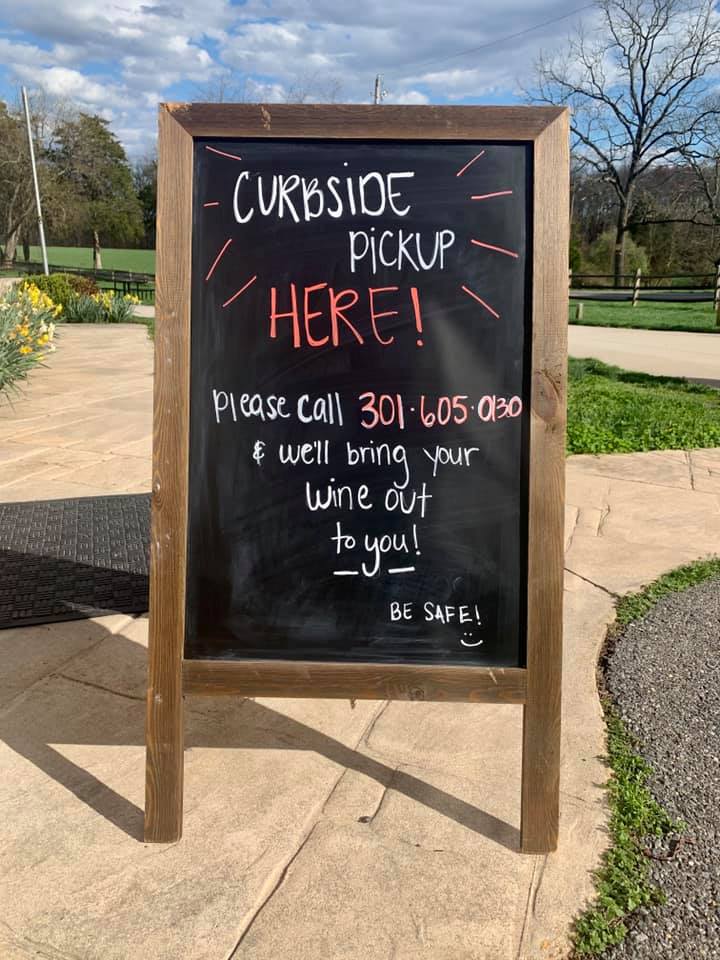 CURBSIDE
PiCKUP
HERE!
Please call 301·605·0130
& we'll bring your
wine out
to you!
BE SAFE!